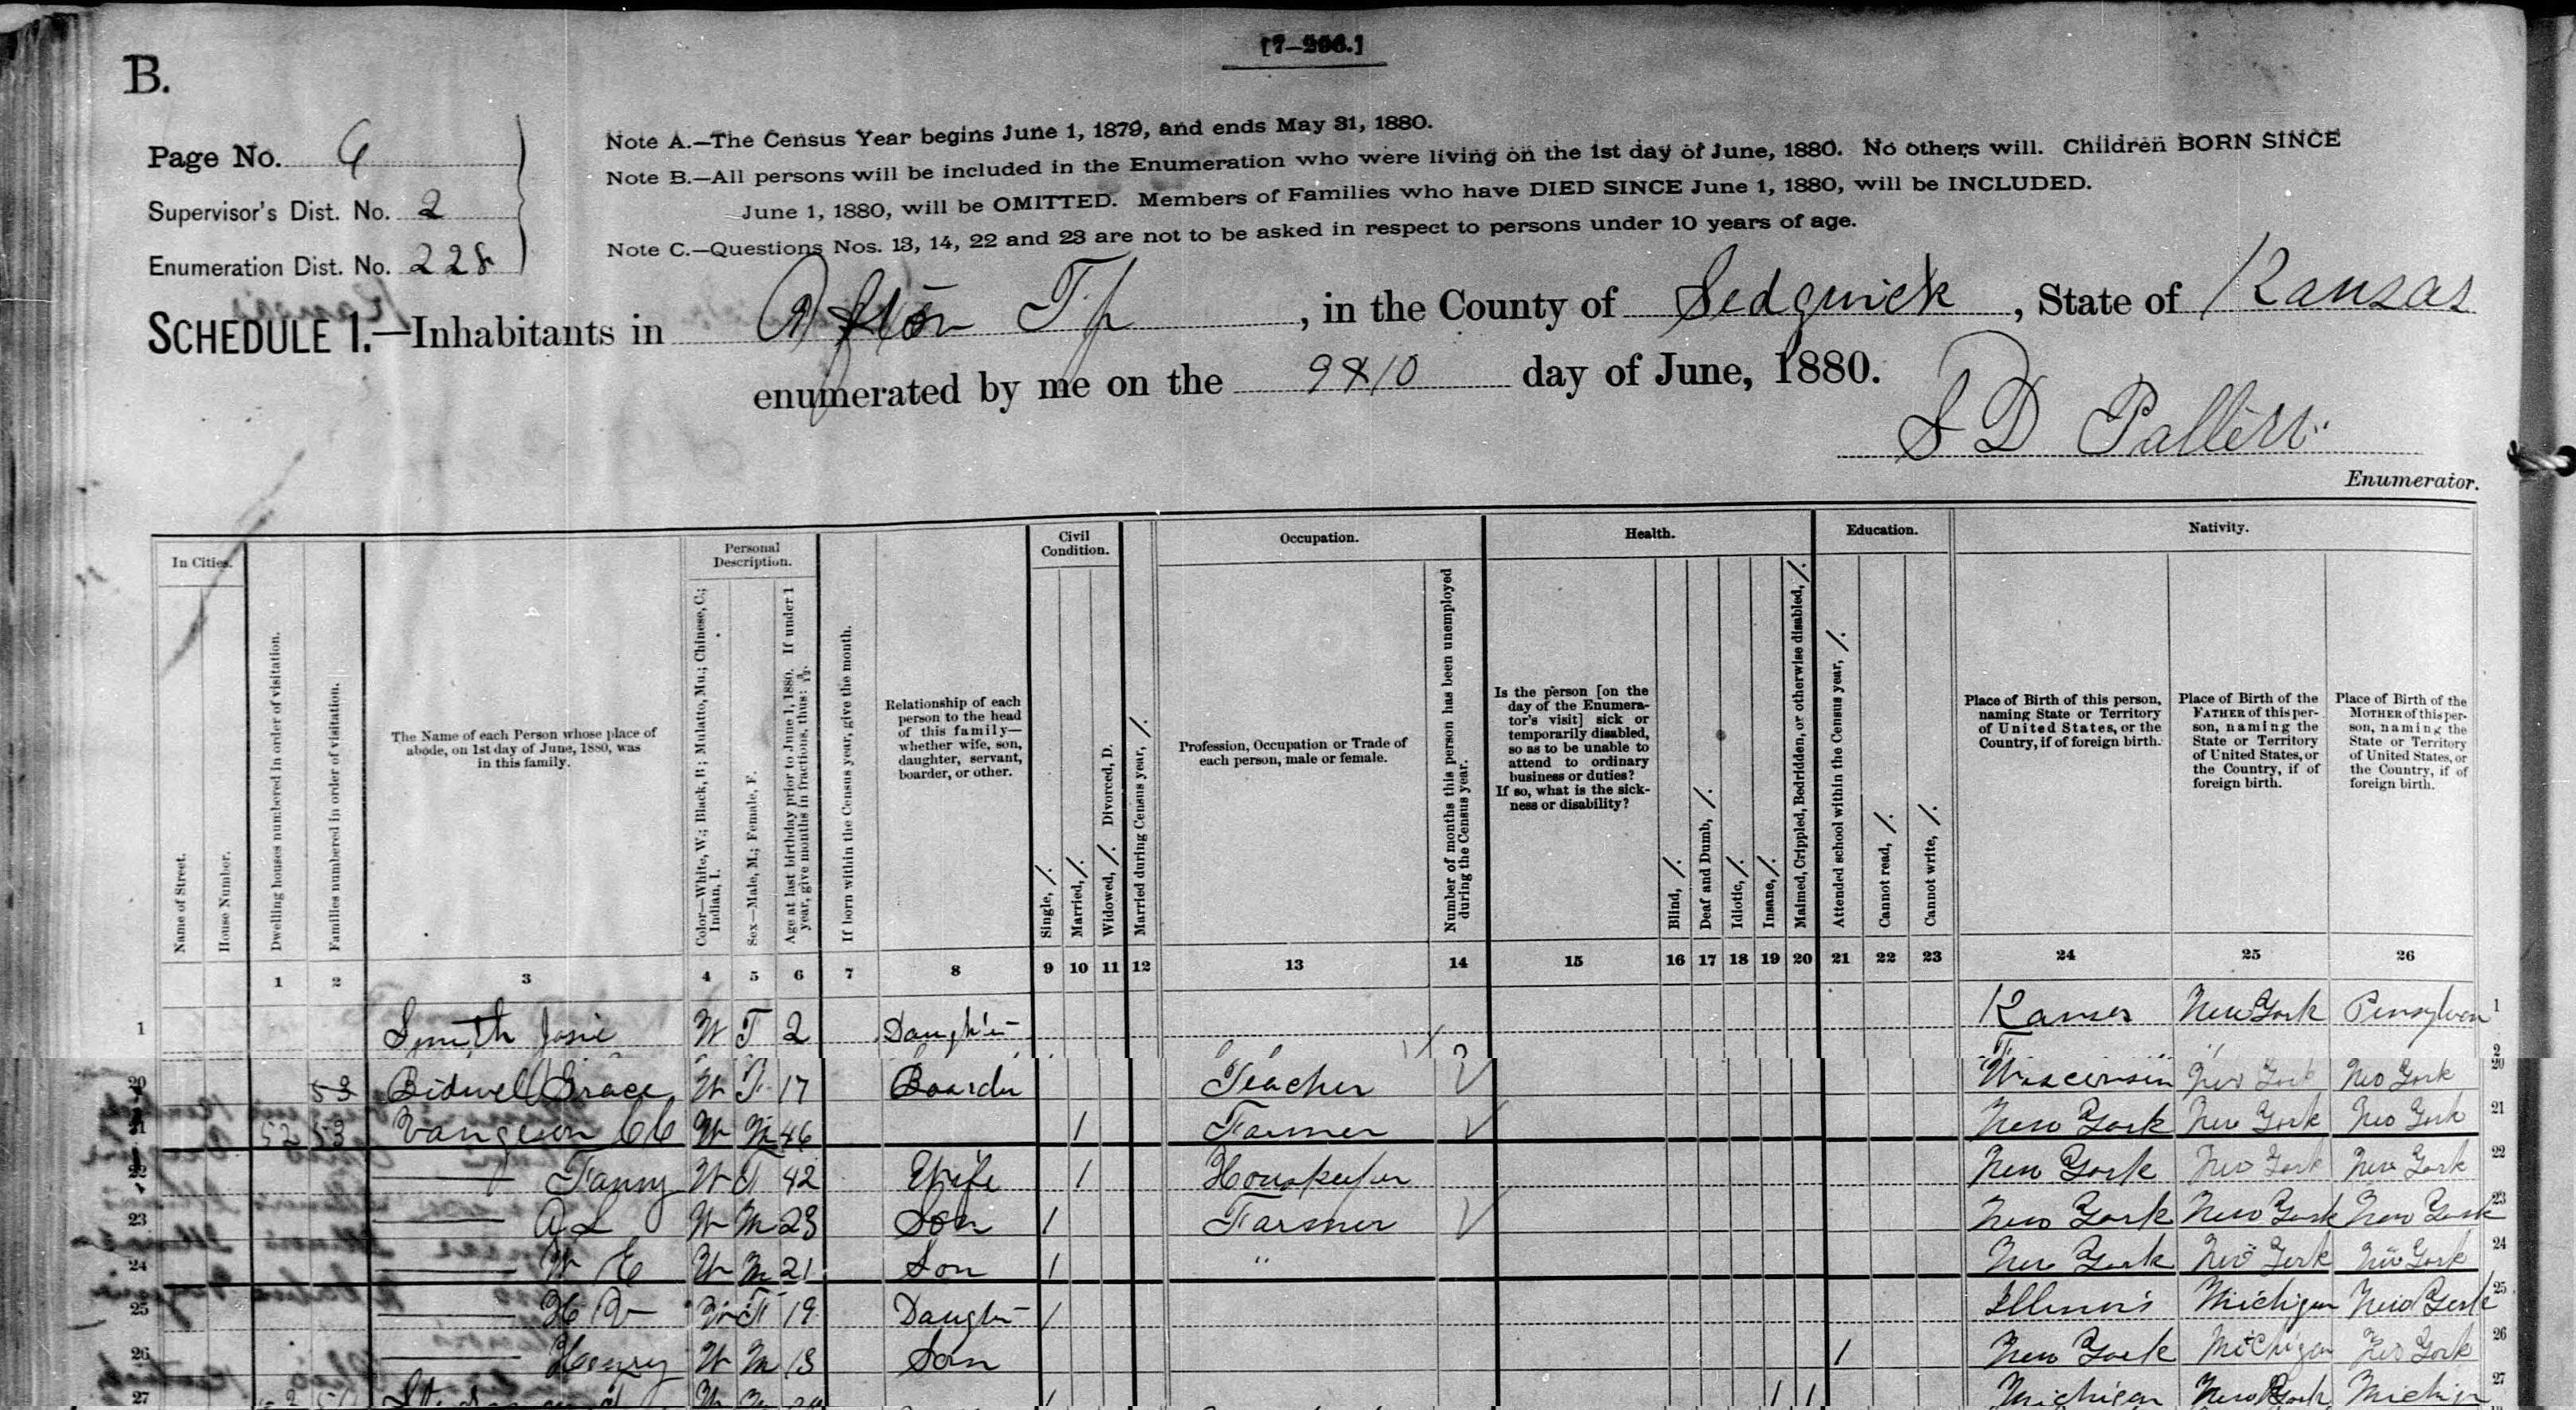 [7-296.]
B.
Page No. 6
Supervisor's Dist. No. 2
Enumeration Dist. No. 228
Note A.—The Census Year begins June 1, 1879, and ends May 31, 1880.
Note B.—All persons will be included in the Enumeration who were living on the 1st day of June, 1880. No others will. Children BORN SINCE
June 1, 1880, will be OMITTED. Members of Families who have DIED SINCE June 1, 1880, will be INCLUDED.
Note C.—Questions Nos. 13, 14, 22 and 23 are not to be asked in respect to persons under 10 years of age.
SCHEDULE 1.—Inhabitants in Afton Tp, in the County of Sedgwick, State of Kansas
enumerated by me on the 9 & 10 day of June, 1880.
S D
Enumerator.
In Cities.
Name of Street.
House Number.
Dwelling houses numbered in order of visitation.
Families numbered in order of visitation.
The Name of each Person whose place of
abode, on 1st day of June, 1880, was
in this family.
Personal
Description.
Color—White, W.; Black, B.; Mulatto, Mu.; Chinese, C.;
Indian, I.
Sex—Male, M.; Female, F.
Age at last birthday prior to June 1, 1880. If under 1
year, give months in fractions, thus: 3/12.
If born within the Census year, give the month.
Relationship of each
person to the head
of this family—
whether wife, son,
daughter, servant,
boarder, or other.
Civil
Condition.
Single, /.
Married, /.
Widowed, /. Divorced, D.
Married during Census year, /.
Occupation.
Profession, Occupation or Trade of
each person, male or female.
Number of months this person has been unemployed
during the Census year.
Health.
Is the person [on the
day of the Enumera-
tor's visit] sick or
temporarily disabled,
so as to be unable to
attend to ordinary
business or duties?
If so, what is the sick-
ness or disability?
Blind, /.
Deaf and Dumb, /.
Idiotic, /.
Insane, /.
Maimed, Crippled, Bedridden, or otherwise disabled, /.
Education.
Attended school within the Census year, /.
Cannot read, /.
Cannot write, /.
Nativity.
Place of Birth of this person,
naming State or Territory
of United States, or the
Country, if of foreign birth.
Place of Birth of the
FATHER of this per-
son, naming the
State or Territory
of United States, or
the Country, if of
foreign birth.
Place of Birth of the
MOTHER of this per-
son, naming the
State or Territory
of United States, or
the Country, if of
foreign birth.
1 2 3 4 5 6 7 8 9 10 11 12 13 14 15 16 17 18 19 20 21 22 23 24 25 26
1 Smith Josie W F 2 Daughter Kansas New York Pensylvan 1
2
20 53 Bidwell Grace W F 17 Boarder Teacher Wisconsin New York New York 20
21 52 53 C C W M 46 / Farmer New York New York New York 21
22 — Fanny W F 42 Wife / Houskeeper New York New York New York 22
23 — A L W M 23 Son / Farmer New York New York New York 23
24 — W E W M 21 Son / " New York New York New York 24
25 — H V W F 19 Daughter / Illinois Michigan New York 25
26 — Henry W M 13 Son / New York Michigan New York 26
27 W M / / / Michigan New York Michigan 27